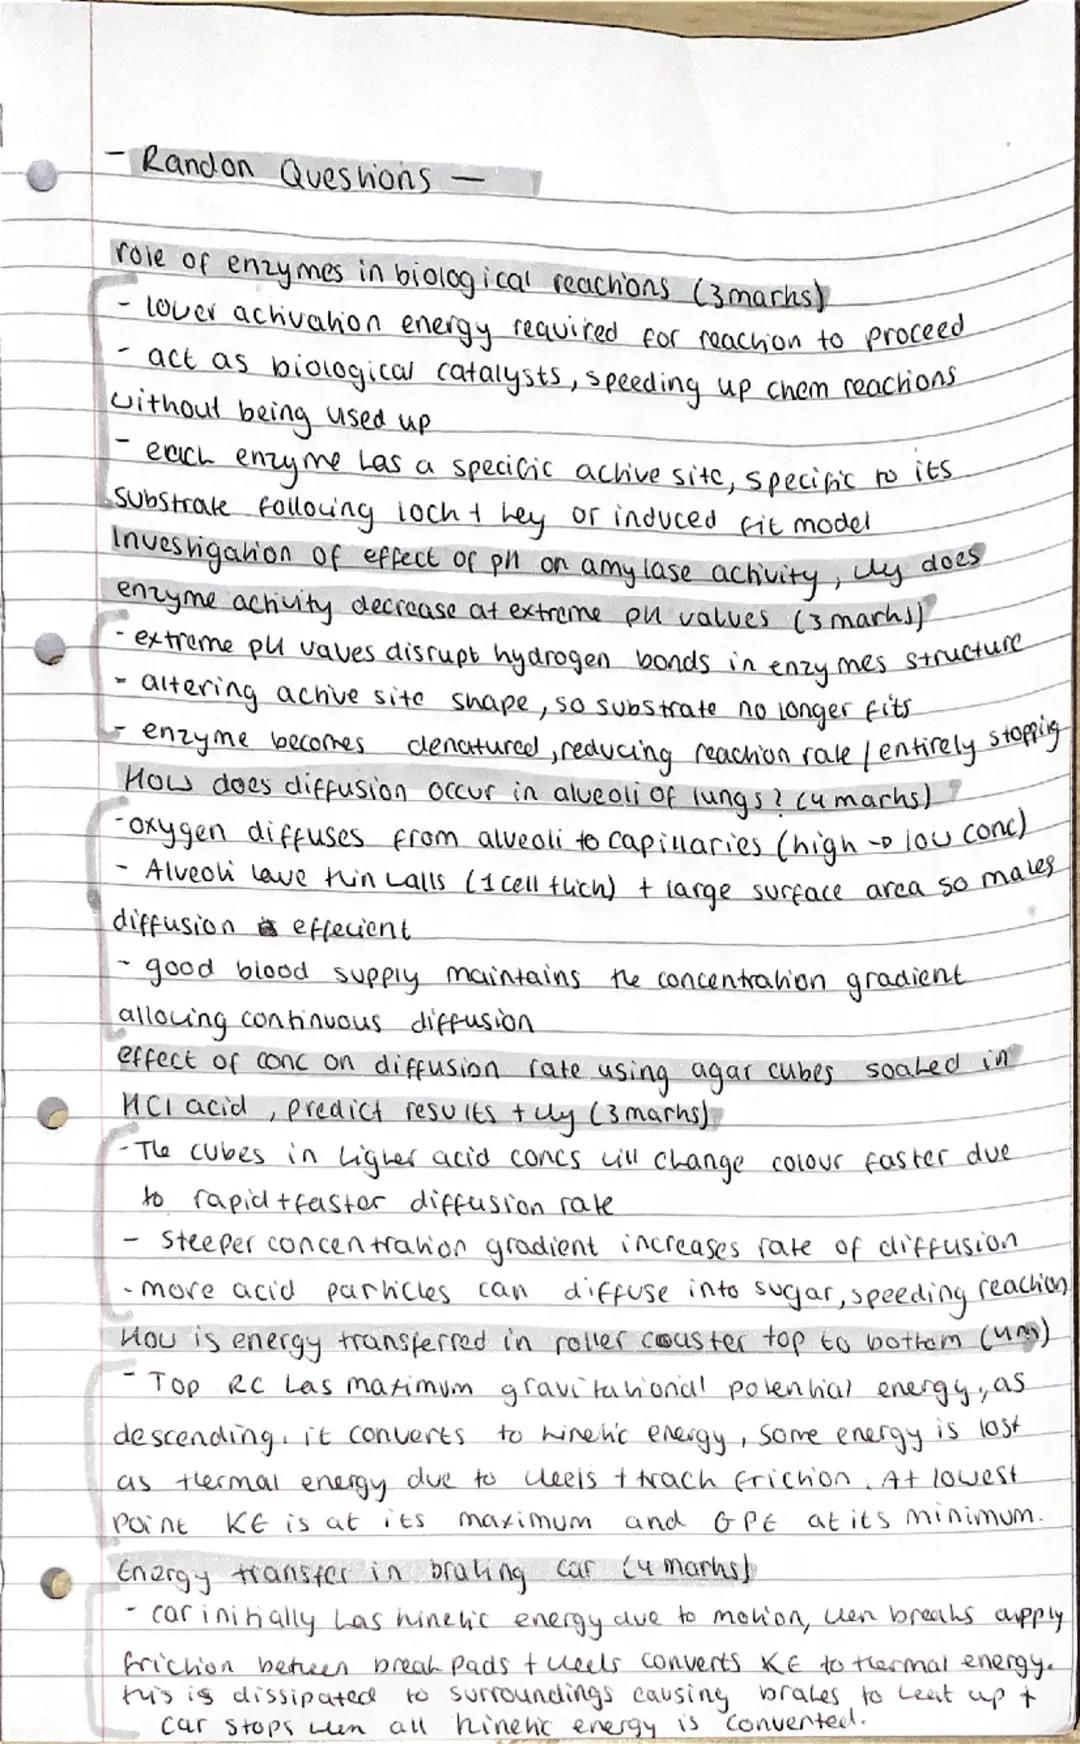 - Randon Questions -
role of enzymes in biological reactions (3 marks)
- lower activation energy required for reaction to proceed
- act as biological catalysts, speeding up chem reactions
without being used up
- each enzyme has a specific active site, specific to its
substrate following lock + key or induced fit model
Investigation of effect of pH on amylase activity, why does
enzyme activity decrease at extreme pH values (3 marks)
- extreme pH vaves disrupt hydrogen bonds in enzymes structure
- altering active site shape, so substrate no longer fits
- enzyme becomes denatured, reducing reaction rate / entirely stopping
How does diffusion occur in alveoli of lungs? (4 marks)
- oxygen diffuses from alveoli to capillaries (high → low conc)
- Alveoli have thin walls (1 cell thick) + large surface area so makes
diffusion effecient
- good blood supply maintains the concentration gradient
allowing continuous diffusion
effect of conc on diffusion rate using agar cubes soaked in
HCl acid, predict results + why (3 marks)
- The cubes in higher acid concs will change colour faster due
to rapid + faster diffusion rate
- steeper concentration gradient increases rate of diffusion
- more acid particles can diffuse into sugar, speeding reaction
How is energy transferred in roller couster top to bottom (4m)
- Top RC has maximum gravitational potential energy, as
descending, it converts to kinetic energy, some energy is lost
as thermal energy due to wheels + track friction. At lowest
point KE is at its maximum and GPE at its minimum.
Energy transfer in braking car (4 marks)
- car initially has kinetic energy due to motion, when breaks apply
friction between break pads + wheels converts KE to thermal energy.
this is dissipated to surroundings causing brakes to heat up +
car stops when all kinetic energy is converted.